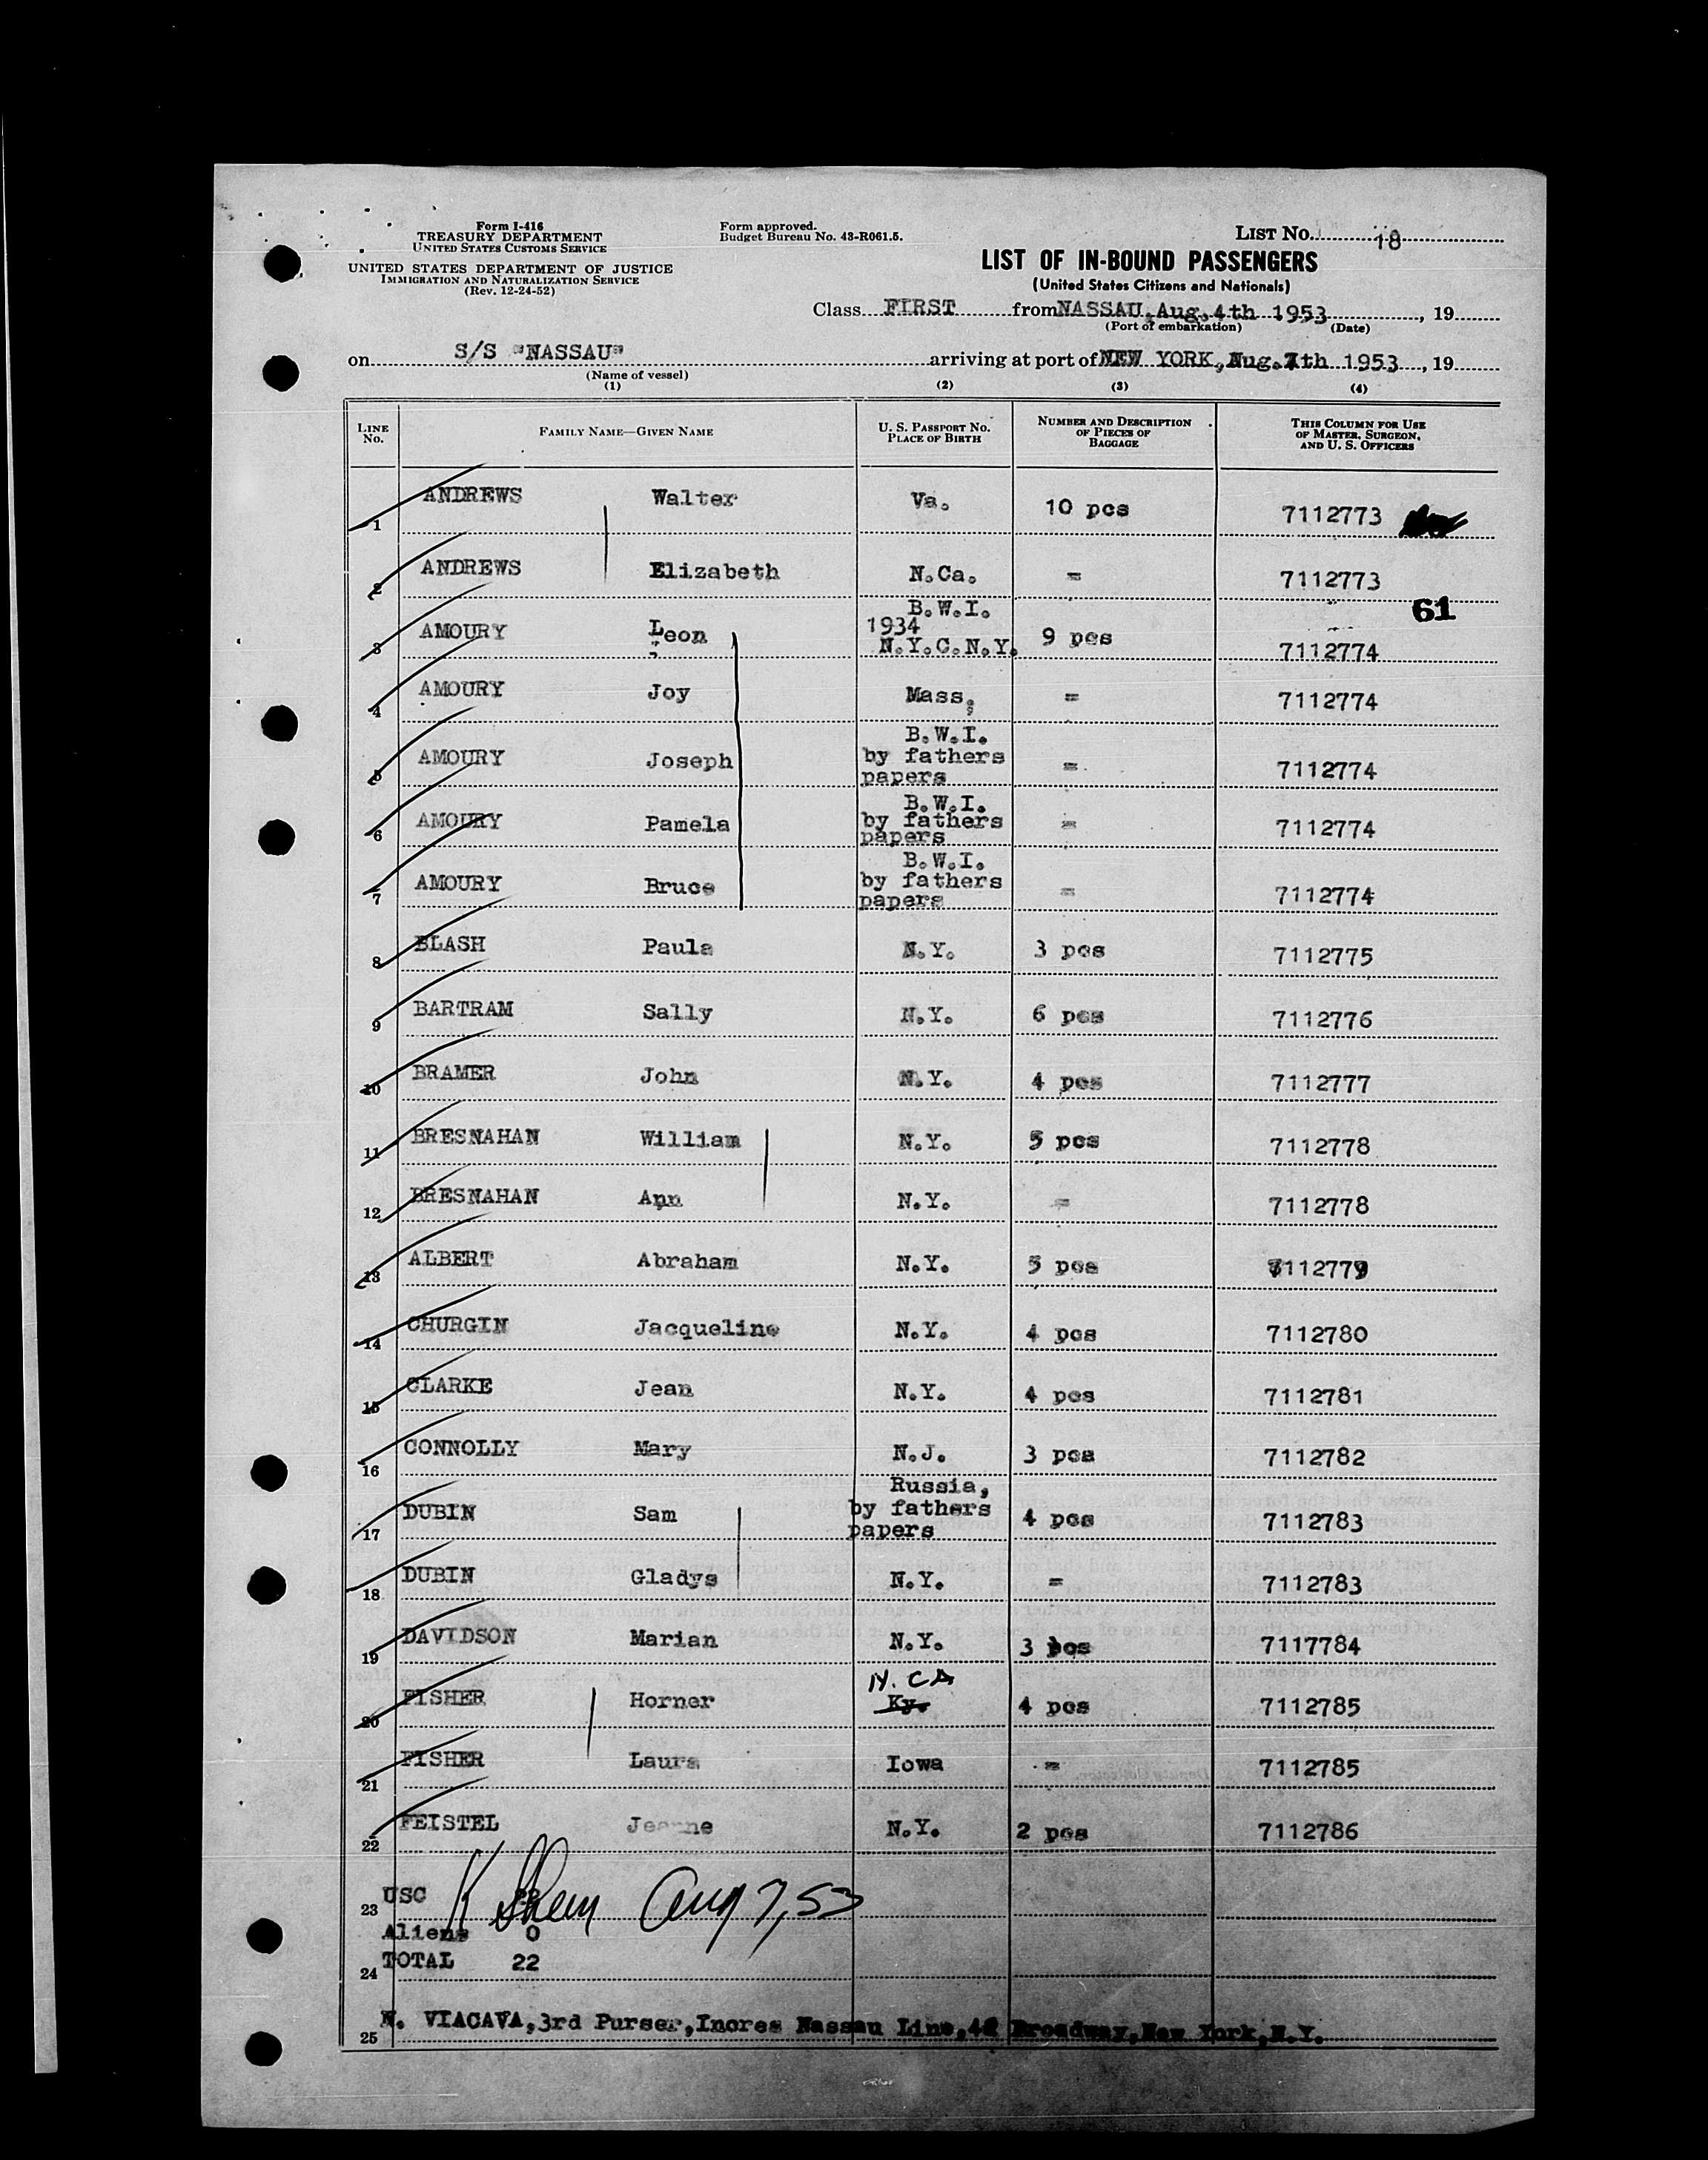 Form I-416
TREASURY DEPARTMENT
UNITED STATES CUSTOMS SERVICE
UNITED STATES DEPARTMENT OF JUSTICE
IMMIGRATION AND NATURALIZATION SERVICE
(Rev. 12-24-52)
Form approved.
Budget Bureau No. 43-R061.5.
LIST No. 18
LIST OF IN-BOUND PASSENGERS
(United States Citizens and Nationals)
Class FIRST from NASSAU, Aug. 4th 1953, 19
(Port of embarkation) (Date)
on S/S "NASSAU" arriving at port of NEW YORK, Aug. 7th 1953, 19
(Name of vessel)
(1) (2) (3) (4)
LINE No. FAMILY NAME—GIVEN NAME U. S. PASSPORT No. PLACE OF BIRTH NUMBER AND DESCRIPTION OF PIECES OF BAGGAGE THIS COLUMN FOR USE OF MASTER, SURGEON, AND U. S. OFFICERS
1 ANDREWS Walter Va. 10 pcs 7112773
2 ANDREWS Elizabeth N.Ca. = 7112773
61
3 AMOURY Leon B.W.I. 1934 N.Y.C.N.Y. 9 pcs 7112774
4 AMOURY Joy Mass, = 7112774
5 AMOURY Joseph B.W.I. by fathers papers = 7112774
6 AMOURY Pamela B.W.I. by fathers papers = 7112774
7 AMOURY Bruce B.W.I. by fathers papers = 7112774
8 BLASH Paula N.Y. 3 pcs 7112775
9 BARTRAM Sally N.Y. 6 pcs 7112776
10 BRAMER John N.Y. 4 pcs 7112777
11 BRESNAHAN William N.Y. 5 pcs 7112778
12 BRESNAHAN Ann N.Y. = 7112778
13 ALBERT Abraham N.Y. 5 pcs 7112779
14 CHURGIN Jacqueline N.Y. 4 pcs 7112780
15 CLARKE Jean N.Y. 4 pcs 7112781
16 CONNOLLY Mary N.J. 3 pcs 7112782
17 DUBIN Sam Russia, by fathers papers 4 pcs 7112783
18 DUBIN Gladys N.Y. = 7112783
19 DAVIDSON Marian N.Y. 3 pcs 7117784
20 FISHER Horner N. CA Ky. 4 pcs 7112785
21 FISHER Laura Iowa = 7112785
22 FEISTEL Jeanne N.Y. 2 pcs 7112786
23 USC Aug 7, 53
Aliens 0
24 TOTAL 22
25 N. VIACAVA, 3rd Purser, Incres Nassau Line, 42 Broadway, New York, N.Y.